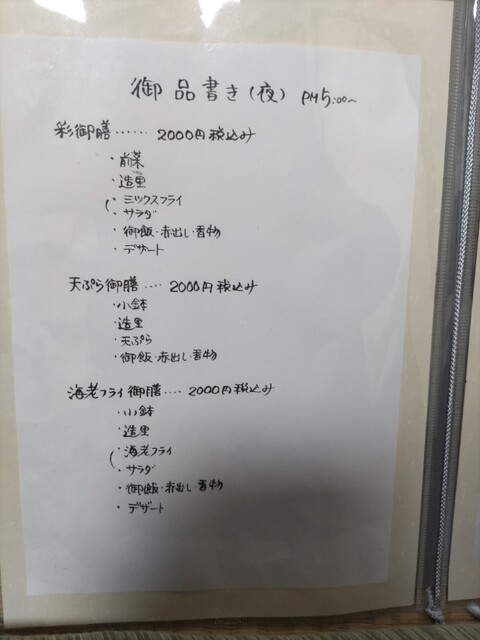 御品書き(夜) PM5:00〜
彩御膳…… 2000円税込み
・前菜
・造里
・ミックスフライ
・サラダ
・御飯・赤出し・香物
・デザート
天ぷら御膳…. 2000円税込み
・小鉢
・造里
・天ぷら
・御飯・赤出し・香物
海老フライ御膳…. 2000円税込み
・小鉢
・造里
・海老フライ
・サラダ
・御飯・赤出し・香物
・デザート